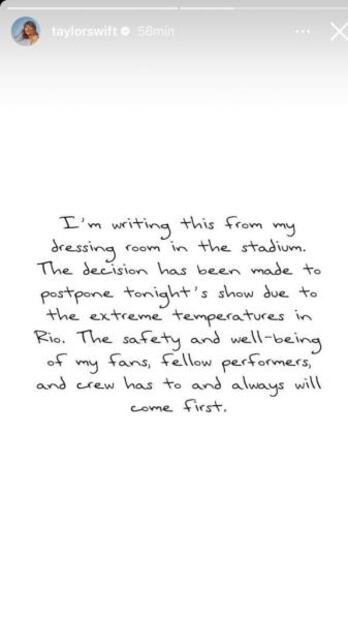 taylorswift 56min
I'm writing this from my
dressing room in the stadium.
The decision has been made to
postpone tonight's show due to
the extreme temperatures in
Rio. The safety and well-being
of my fans, fellow performers,
and crew has to and always will
come first.